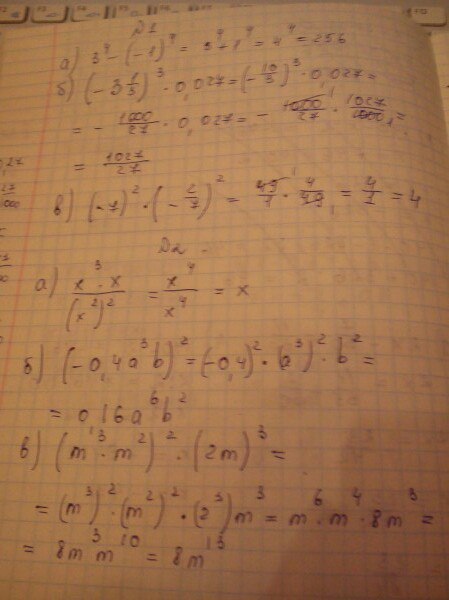 D1
а) 3⁴ - (-1)⁴ = 3⁴ + 1⁴ = 4⁴ = 256
б) (- 3 1/3)³ · 0,027 = (- 10/3)³ · 0,027 =
= - 1000/27 · 0,027 = - 1000/27 · 1027/1000 =
= 1027/27
в) (-7)² · (- 2/7)² = 49/1 · 4/49 = 4/1 = 4
D2.
а) x³ · x/(x²)² = x⁴/x⁴ = x
б) (-0,4a³b)² = (-0,4)² · (a³)² · b² =
= 0,16a⁶b²
в) (m³ · m²)² · (2m)³ =
= (m³)² · (m²)² · (2³)m³ = m⁶ · m⁴ · 8m³ =
= 8m³m¹⁰ = 8m¹³